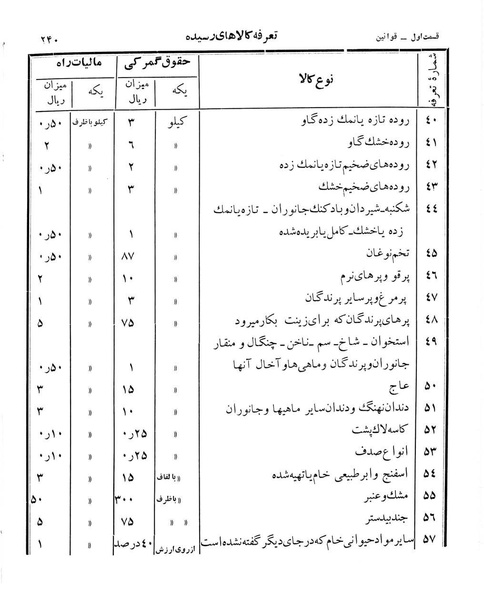 قسمت اول ــ قوانین تعرفه کالاهای رسیده ۲۴۰
شمارهٔ تعرفه نوع کالا حقوق گمرکی مالیات راه
یکه میزان ریال یکه میزان ریال
۴۰ روده تازه یانمك زده گاو کیلو ۳ کیلو باظرف ۰٫۵۰
۴۱ روده خشك گاو » ۶ » ۲
۴۲ روده‌های ضخیم تازه یانمك زده » ۲ » ۰٫۵۰
۴۳ روده‌های ضخیم خشك » ۳ » ۱
۴۴ شکنبه ــ شیردان و بادکنك جانوران ــ تازه یانمك
زده یاخشك ــ کامل یا بریده شده » ۱ » ۰٫۵۰
۴۵ تخم نوغان » ۸۷ » ۰٫۵۰
۴۶ پرقو و پرهای نرم » ۱۰ » ۲
۴۷ پر مرغ و پر سایر پرندگان » ۳ » ۱
۴۸ پرهای پرندگان که برای زینت بکار میرود » ۷۵ » ۵
۴۹ استخوان ــ شاخ ــ سم ــ ناخن ــ چنگال و منقار
جانوران و پرندگان و ماهی‌ها و آخال آنها » ۱ » ۰٫۵۰
۵۰ عاج » ۱۵ » ۳
۵۱ دندان نهنگ و دندان سایر ماهیها و جانوران » ۱۰ » ۳
۵۲ کاسه لاك پشت » ۰٫۲۵ » ۰٫۱۰
۵۳ انواع صدف » ۰٫۲۵ » ۰٫۱۰
۵۴ اسفنج و ابر طبیعی خام یا تهیه شده بالفاف ۱۵ » ۳
۵۵ مشك و عنبر باظرف ۳۰۰ » ۵۰
۵۶ جند بیدستر » » ۷۵ » ۵
۵۷ سایر مواد حیوانی خام که در جای دیگر گفته نشده است از روی ارزش ۴۰ درصد » ۱